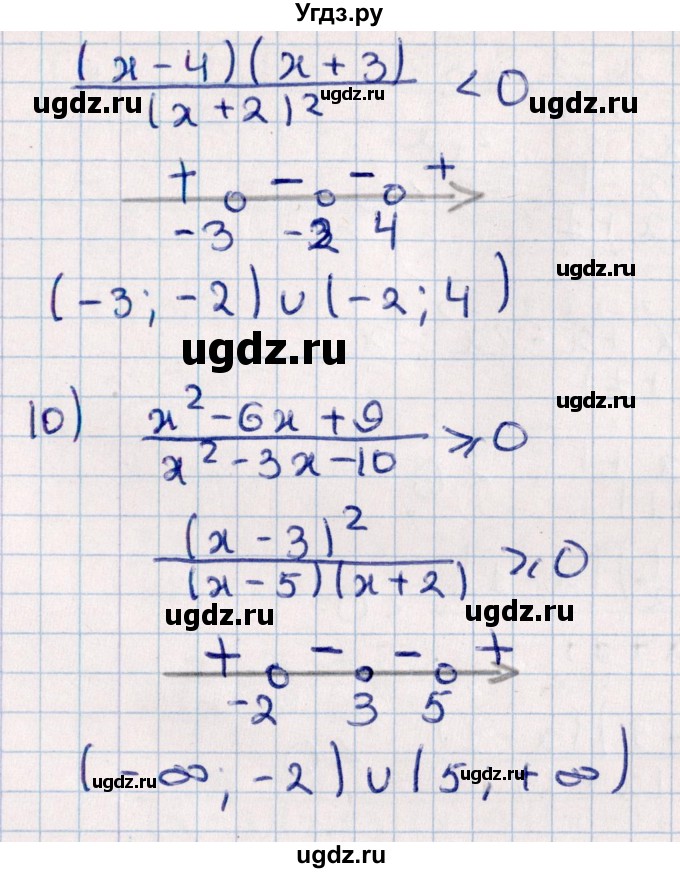 Угдз.ру
(x-4)(x+3)
ugdz.ru ugdz.ru < 0 ugdz.ru
(x+2)²
+ - - +
-3 -2 4
ugdz.ru
(-3; -2) ∪ (-2; 4)
ugdz.ru
ugdz.ru
10) x²-6x+9
≥ 0
x²-3x-10
(x-3)²
≥ 0
(x-5)(x+2)
ugdz.ru ugdz.ru
+ - - +
-2 3 5
(-∞; -2) ∪ (5; +∞)
ugdz.ru ugdz.ru
ugdz.ru